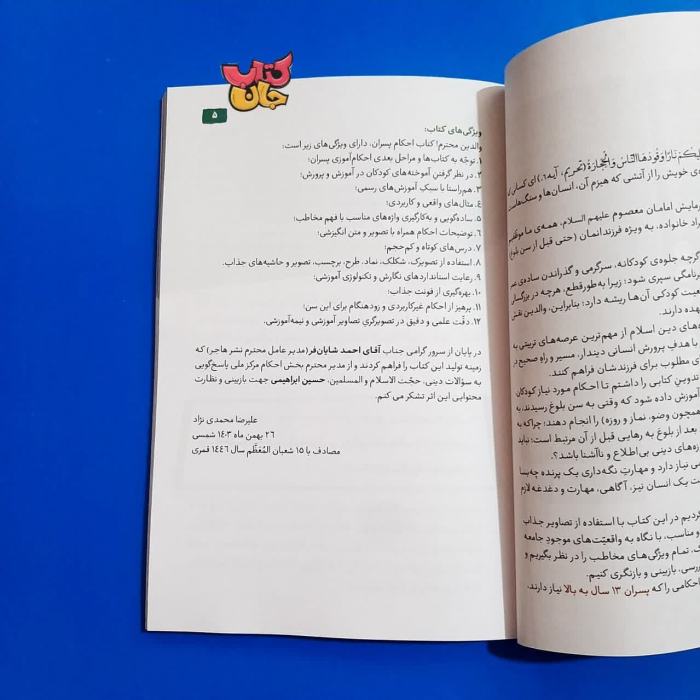 کتاب
جان
لِیكُم نَارًا وَقُودُهَا النَّاسُ وَالْحِجَارَةُ (تحریم، آیه ۶)؛ ای کسانی
ی خویش را از آتشی که هیزم آن، انسان‌ها و سنگ‌هاست
رمایش امامان معصوم علیهم السلام، همه‌ی ما موظفیم
راد خانواده، به ویژه فرزندانمان (حتی قبل از سن بلوغ)
گرچه جلوه‌ی کودکانه، سرگرمی و گذراندن ساده‌ی
رنامگی سپری شود؛ زیرا به‌طور قطع، هرچه در بزرگسالی
عیت کودکی آن‌ها ریشه دارد؛ بنابراین، والدین نقش
هده دارند.
‌های دین اسلام از مهم‌ترین عرصه‌های تربیتی به
با هدف پرورش انسانی دیندار، مسیر و راهِ صحیح در
ی مطلوب برای فرزندشان فراهم کنند.
تدوین کتابی را داشتم تا احکام مورد نیاز کودکان
آموزش داده شود که وقتی به سن بلوغ رسیدند، به
همچون وضو، نماز و روزه) را انجام دهند؛ چراکه به
بعد از بلوغ به رهایی قبل از آن مرتبط است؛ نباید
زه‌های دینی بی‌اطلاع و ناآشنا باشد؟.
ی نیاز دارد و مهارتِ نگه‌داری یک پرنده چه‌بسا
ت یک انسان نیز، آگاهی، مهارت و دغدغه لازم
گردیم در این کتاب با استفاده از تصاویر جذاب
و مناسب، با نگاه به واقعیّت‌های موجود جامعه
ک، تمام ویژگی‌های مخاطب را در نظر بگیریم و
ررسی، بازبینی و بازنگری کنیم.
احکامی را که پسران ۱۳ سال به بالا نیاز دارند،
۵
ویژگی‌های کتاب:
والدین محترم! کتاب احکام پسران، دارای ویژگی‌های زیر است:
۱. توجّه به کتاب‌ها و مراحل بعدی احکام‌آموزی پسران؛
۲. در نظر گرفتن آموخته‌های کودکان در آموزش و پرورش؛
۳. هم‌راستا با سبکِ آموزش‌های رسمی؛
۴. مثال‌های واقعی و کاربردی؛
۵. ساده‌گویی و به‌کارگیری واژه‌های مناسب با فهم مخاطب؛
۶. توضیحات احکام همراه با تصویر و متن انگیزشی؛
۷. درس‌های کوتاه و کم‌حجم؛
۸. استفاده از تصویرک، شکلک، نماد، طرح، برچسب، تصویر و حاشیه‌های جذاب.
۹. رعایت استانداردهای نگارش و تکنولوژی آموزشی؛
۱۰. بهره‌گیری از فونت جذاب؛
۱۱. پرهیز از احکام غیرکاربردی و زودهنگام برای این سن؛
۱۲. دقّت علمی و دقیق در تصویرگریِ تصاویر آموزشی و نیمه‌آموزشی.
در پایان از سرور گرامی جناب آقای احمد شایان‌فر (مدیر عامل محترم نشر هاجر) که
زمینه تولید این کتاب را فراهم کردند و از مدیر محترم بخش احکام مرکز ملی پاسخ‌گویی
به سؤالات دینی، حجّت الاسلام و المسلمین، حسین ابراهیمی جهت بازبینی و نظارت
محتوایی این اثر تشکر می کنم.
علیرضا محمدی نژاد
۲۶ بهمن ماه ۱۴۰۳ شمسی
مصادف با ۱۵ شعبان المُعَظَّم سال ۱۴۴۶ قمری